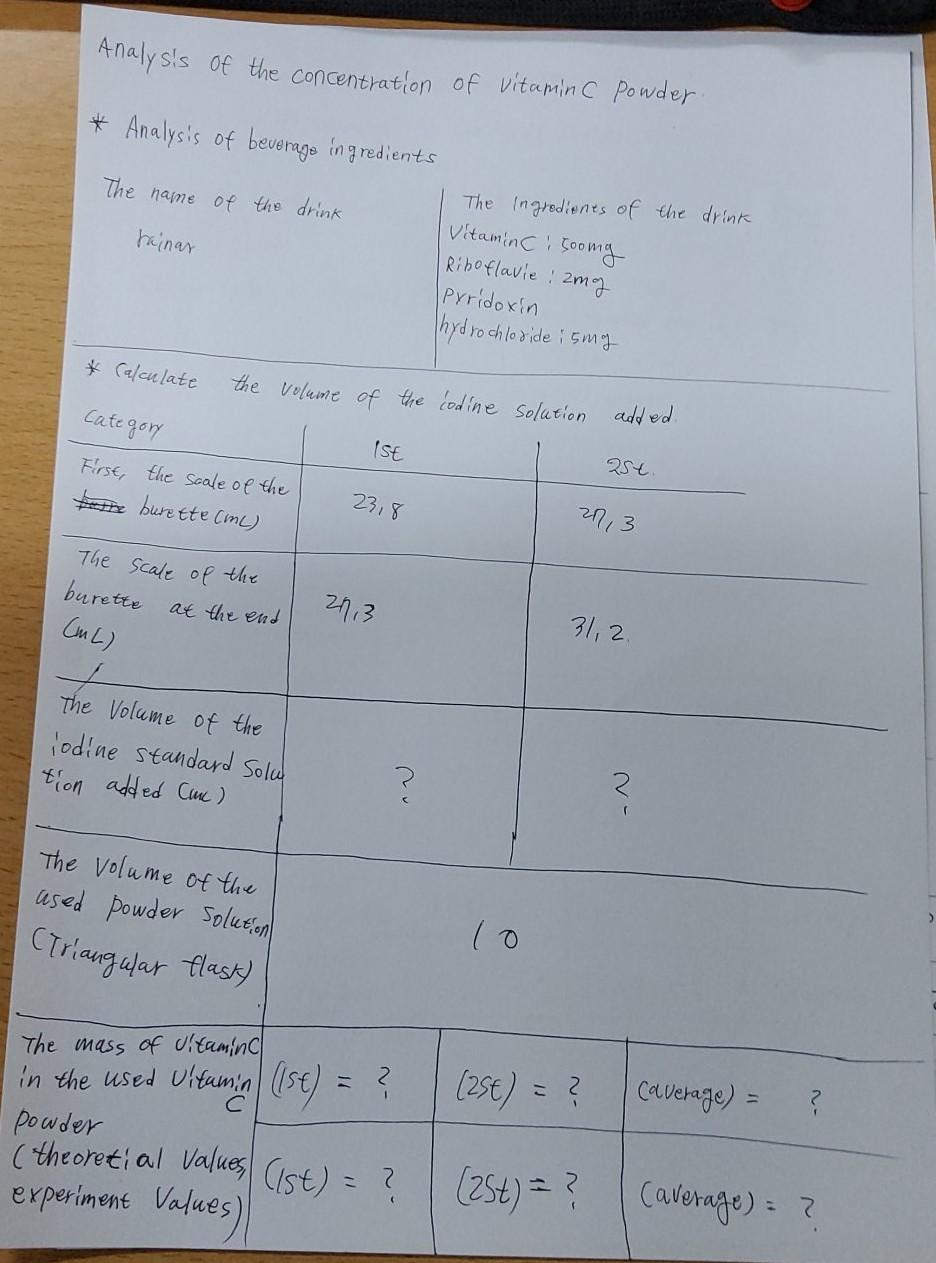 Analysis of the concentration of vitamin C powder.
* Analysis of beverage ingredients
The name of the drink
The Ingredients of the drink
rainar
Vitamin C : 500mg
Riboflavie : 2mg
Pyridoxin
hydrochloride : 5mg
* Calculate the volume of the iodine solution added.
Category
1st
2st.
First, the scale of the
burette (mL)
23,8
27,3
The scale of the
burette at the end
(mL)
27,3
31,2.
The Volume of the
iodine standard Solu
tion added (mL)
?
?
The Volume of the
used powder solution
(Triangular flask)
10
The mass of VitaminC
in the used Vitamin
C
powder
(theoretial Values,
experiment Values)
(1st) = ?
(2st) = ?
(average) = ?
(1st) = ?
(2st) = ?
(average) = ?